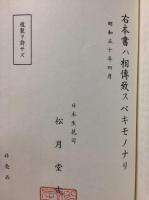 右本書ハ相傳致スベキモノナリ
昭和五十年四月
日本生花司
松月堂古
複製ヲ許サズ
非売品